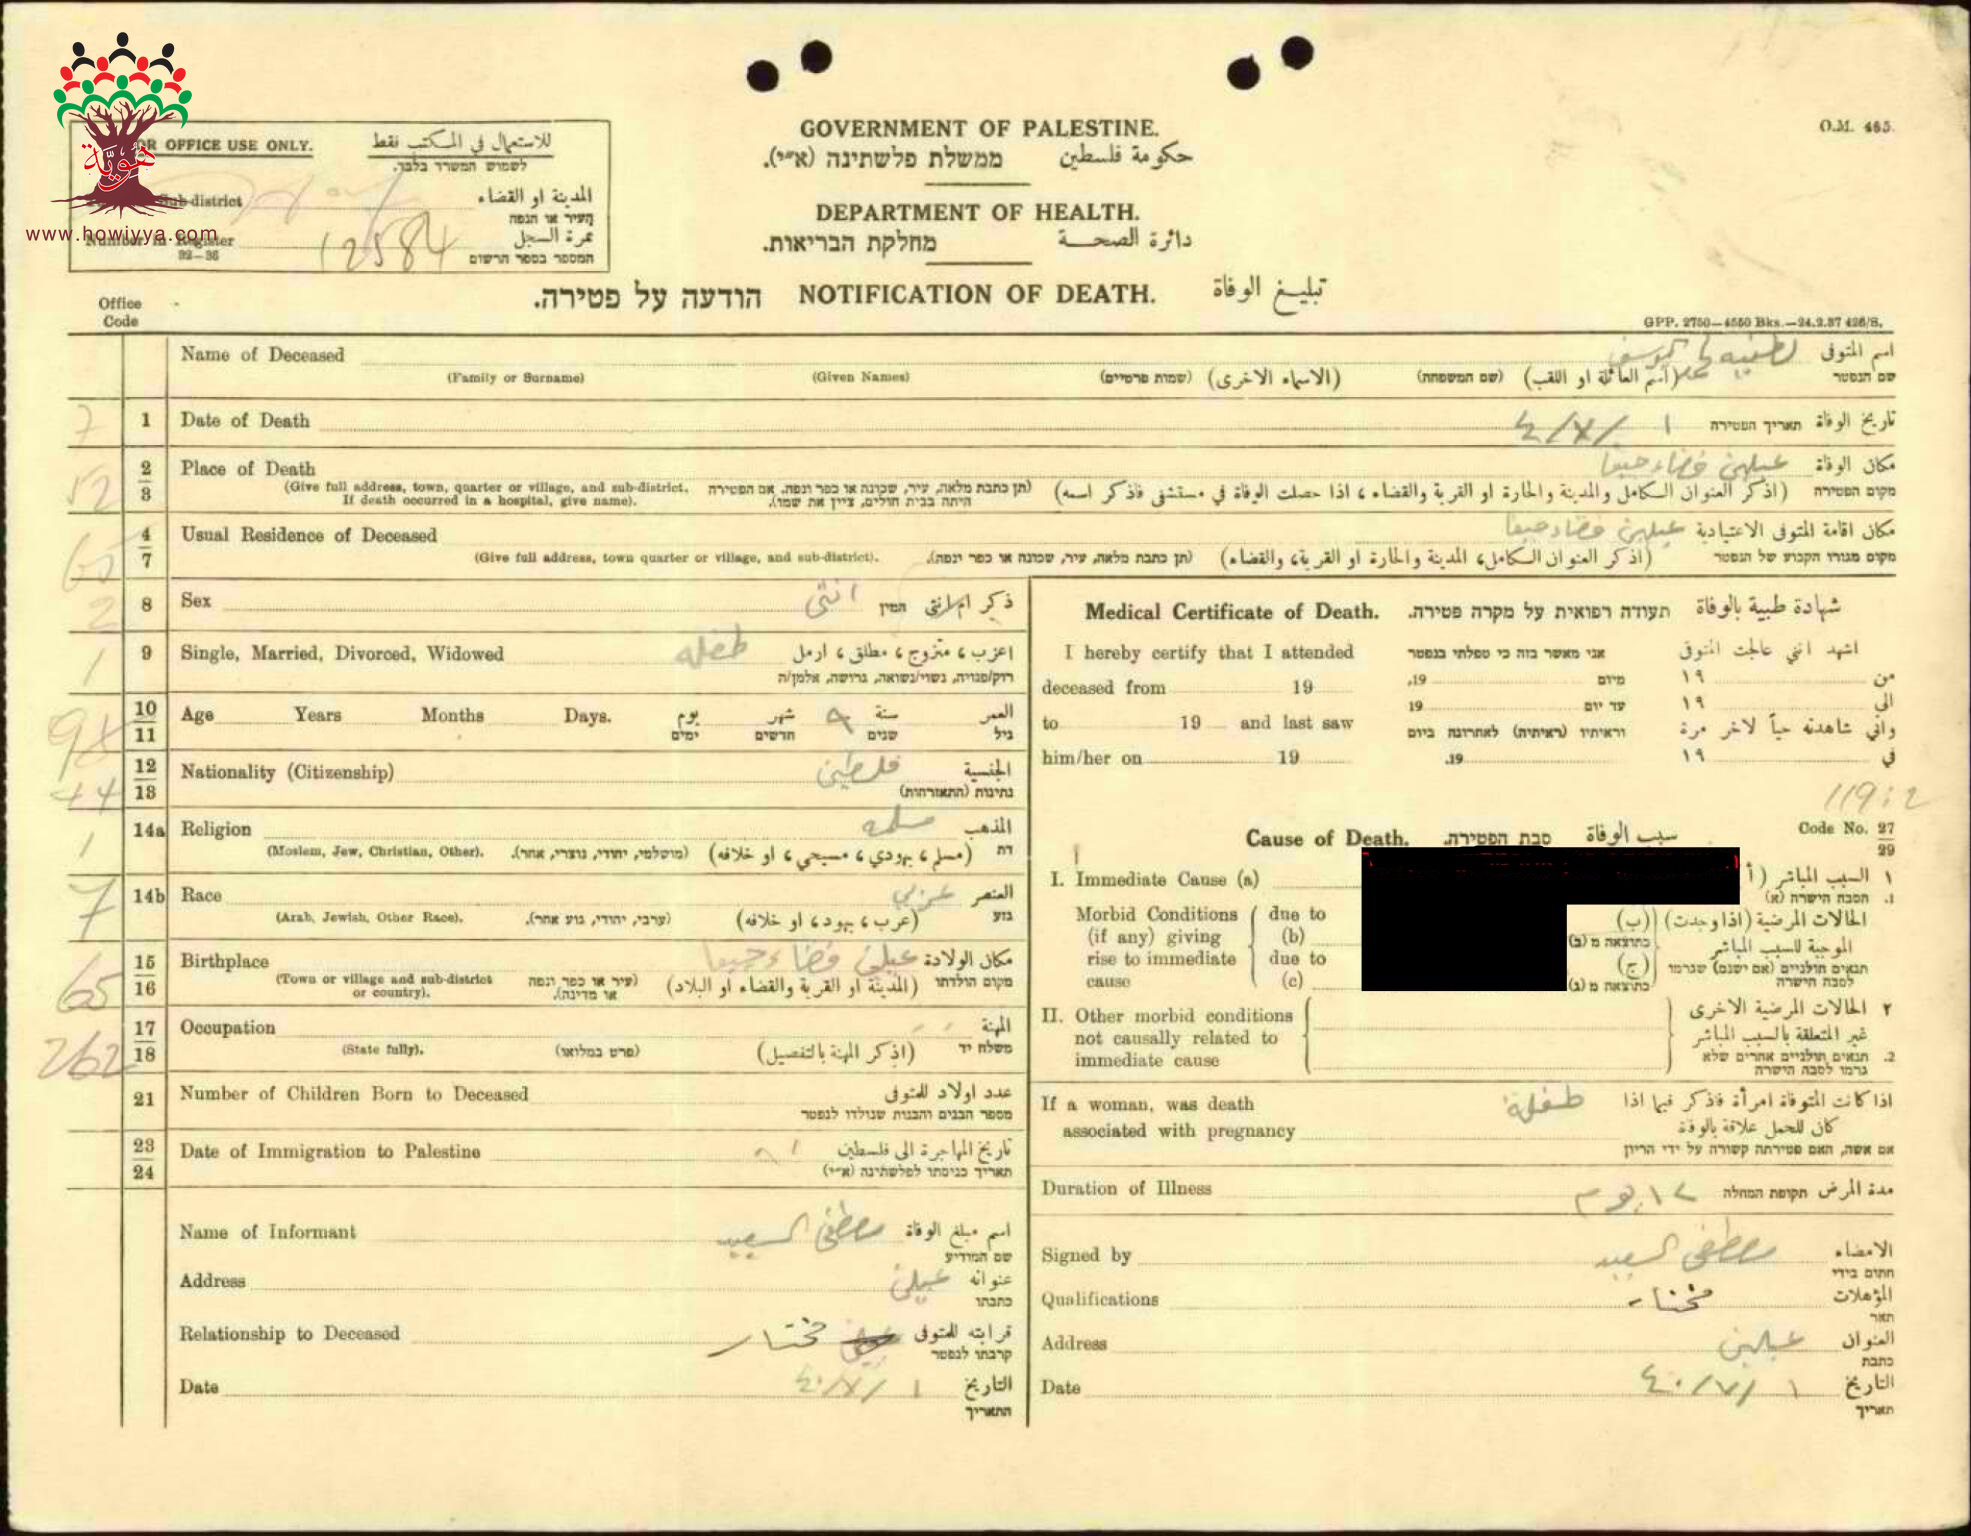 GOVERNMENT OF PALESTINE.
حكومة فلسطين ממשלת פלשתינה (א״י).
DEPARTMENT OF HEALTH.
دائرة الصحة מחלקת הבריאות.
O.M. 465.
هوية
www.howiyya.com
FOR OFFICE USE ONLY. للاستعمال في المكتب فقط
לשמוש המשרד בלבד.
Sub-district المدينة او القضاء
העיר או הנפה
Number in Register 12584 نمرة السجل
32—36 המספר בספר הרשום
הודעה על פטירה. NOTIFICATION OF DEATH. تبليغ الوفاة
Office Code
GPP. 2750—4550 Bks.—24.2.37 426/S.
Name of Deceased لطفيه اسم المتوفى
(Family or Surname) (Given Names) (שמות פרטיים) (الاسماء الاخرى) (שם המשפחה) (اسم العائلة او اللقب) שם הנפטר
7 1 Date of Death ١/٧/٤٠ תאריך הפטירה تاريخ الوفاة
52 2/3 Place of Death عبلين قضاء حيفا مكان الوفاة
(Give full address, town, quarter or village, and sub-district. (תן כתבת מלאה, עיר, שכונה או כפר ונפה. אם הפטירה (اذكر العنوان الكامل والمدينة والحارة او القرية والقضاء ، اذا حصلت الوفاة في مستشفى فاذكر اسمه) מקום הפטירה
If death occurred in a hospital, give name). היתה בבית חולים, ציין את שמו).
4/7 Usual Residence of Deceased عبلين قضاء حيفا مكان اقامة المتوفى الاعتيادية
(Give full address, town quarter or village, and sub-district). (תן כתבת מלאה, עיר, שכונה או כפר ונפה). (اذكر العنوان الكامل، المدينة والحارة او القرية، والقضاء) מקום מגורו הקבוע של הנפטר
2 8 Sex انثى המין ذكر ام انثى
1 9 Single, Married, Divorced, Widowed طفله اعزب ، متزوج ، مطلق ، ارمل
רוק/פנויה, נשוי/נשואה, גרושה, אלמן/ה
98 10/11 Age Years Months Days. يوم شهر ٩ سنة العمر
ימים חדשים שנים גיל
44 12/13 Nationality (Citizenship) فلسطين الجنسية
נתינות (התאזרחות)
1 14a Religion مسلمه المذهب
(Moslem, Jew, Christian, Other). (מושלמי, יהודי, נוצרי, אחר). (مسلم ، يهودي ، مسيحي ، او خلافه) דת
7 14b Race عربي العنصر
(Arab, Jewish, Other Race). (ערבי, יהודי, גזע אחר). (عرب ، يهود ، او خلافه) גזע
65 15/16 Birthplace عبلين قضاء حيفا مكان الولادة
(Town or village and sub-district (עיר או כפר ונפה (المدينة او القرية والقضاء او البلاد) מקום הולדתו
or country). או מדינה).
262 17/18 Occupation المهنة
(State fully). (פרט במלואו) (اذكر المهنة بالتفصيل) משלח יד
21 Number of Children Born to Deceased عدد اولاد للمتوفى
מספר הבנים והבנות שנולדו לנפטר
23/24 Date of Immigration to Palestine تاريخ المهاجرة الى فلسطين
תאריך כניסתו לפלשתינה (א״י)
Name of Informant مصطفى السعيد اسم مبلغ الوفاة
שם המודיע
Address عبلين عنوانه
כתבתו
Relationship to Deceased مختار قرابته للمتوفى
קרבתו לנפטר
Date ١/٧/٤٠ التاريخ
התאריך
Medical Certificate of Death. תעודה רפואית על מקרה פטירה. شهادة طبية بالوفاة
I hereby certify that I attended אני מאשר בזה כי טפלתי בנפטר اشهد انني عالجت المتوفى
deceased from 19 מיום 19. من ١٩
to 19 and last saw עד יום 19 الى ١٩
וראיתיו (ראיתיה) לאחרונה ביום واني شاهدته حياً لاخر مرة
him/her on 19 19. في ١٩
119:2
Code No. 27/29
Cause of Death. סבת הפטירה. سبب الوفاة
I. Immediate Cause (a) ١ السبب المباشر (أ
1. הסבה הישרה (א)
Morbid Conditions due to (ب) الحالات المرضية (اذا وجدت)
(if any) giving (b) כתוצאה מ (ב) الموجبة للسبب المباشر
rise to immediate due to (ج) תנאים חולניים (אם ישנם) שגרמו
cause (c) כתוצאה מ (ג) לסבה הישרה
II. Other morbid conditions ٢ الحالات المرضية الاخرى
not causally related to غير المتعلقة بالسبب المباشر
immediate cause 2. תנאים חולניים אחרים שלא
גרמו לסבה הישרה
If a woman, was death طفلة اذا كانت المتوفاة امرأة فاذكر فيما اذا
associated with pregnancy كان للحمل علاقة بالوفاة
אם אשה, האם פטירתה קשורה על ידי הריון
Duration of Illness ١٢ يوم תקופת המחלה مدة المرض
Signed by مصطفى السعيد الامضاء
חתום בידי
Qualifications مختار المؤهلات
תאר
Address عبلين العنوان
כתבת
Date ١/٧/٤٠ التاريخ
תאריך